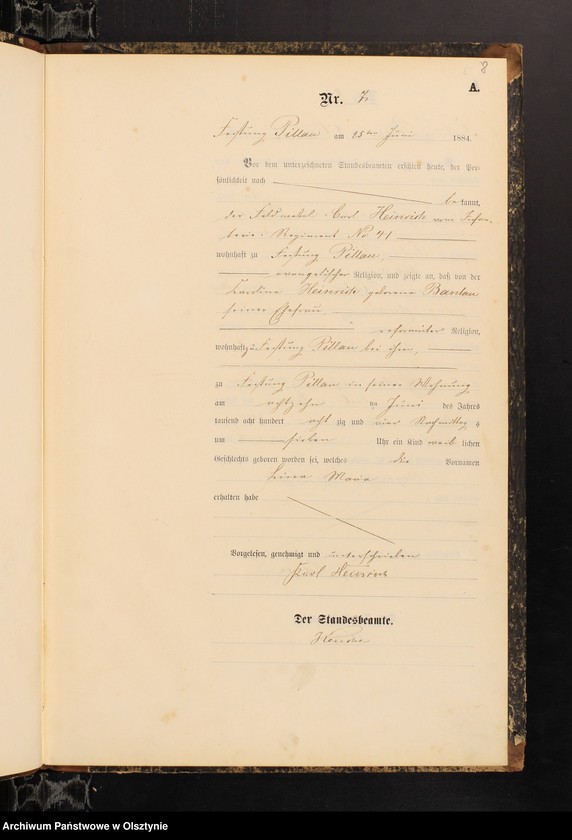 8
A.
Nr. 7.
Festung Pillau am 25ten Juni 1884.
Vor dem unterzeichneten Standesbeamten erschien heute, der Per-
sönlichkeit nach
bekannt,
der Feldwebel Carl Heinrich vom
Regiment No 41
wohnhaft zu Festung Pillau,
evangelischer Religion, und zeigte an, daß von der
Heinrich geborene
seiner Ehefrau,
reformirter Religion,
wohnhaft zu Festung Pillau bei ihm,
zu Festung Pillau in seiner Wohnung
am achtzehn ten Juni des Jahres
tausend acht hundert acht zig und vier Nachmittags
um sieben Uhr ein Kind weib lichen
Geschlechts geboren worden sei, welches die Vornamen
Maria
erhalten habe
Vorgelesen, genehmigt und unterschrieben
Karl Heinrich
Der Standesbeamte.
Archiwum Państwowe w Olsztynie